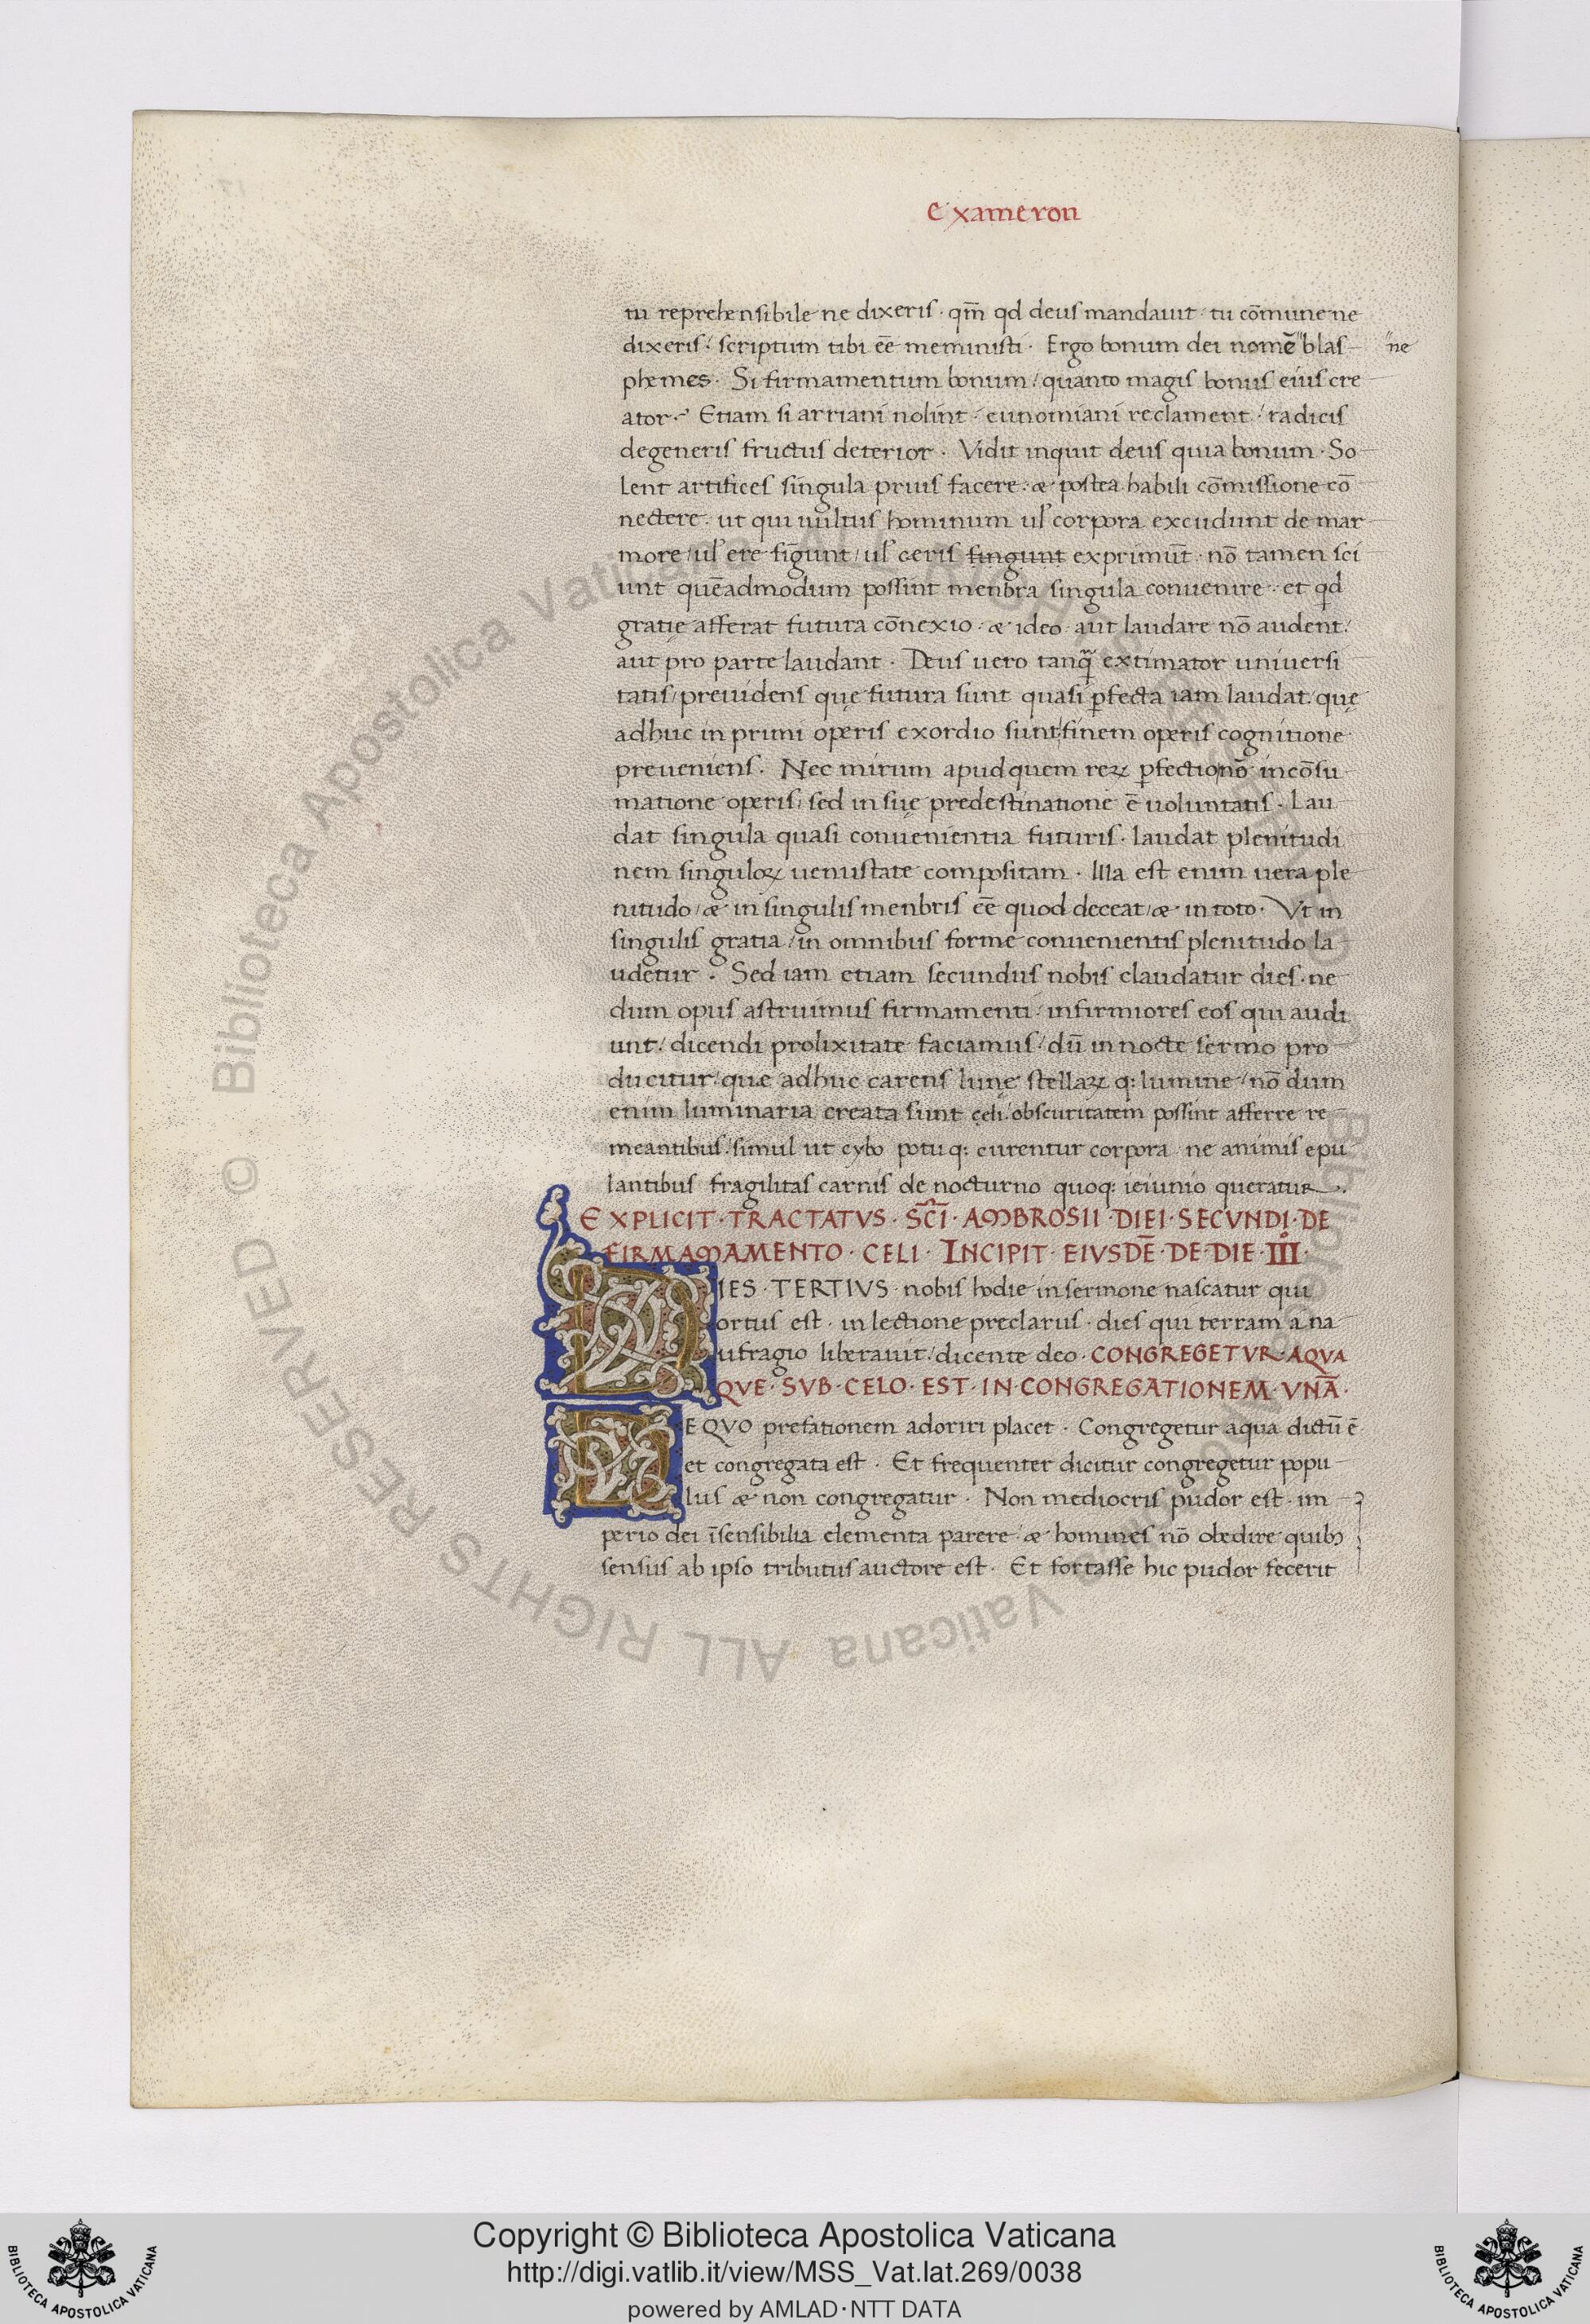 exameron
tu reprehensibile ne dixeris · qm̄ qd deus mandauit · tu cōmune ne
dixeris / scriptum tibi eē meministi · Ergo bonum dei nomē blas
ne
phemes · Si firmamentum bonum / quanto magis bonus eius cre
ator · Etiam si arriani nolint / eunomiani reclament / radicis
degeneris fructus deterior · Vidit inquit deus quia bonum · So
lent artifices singula prius facere · & postea habili cōmissione cō
nectere · ut qui uultus hominum ul̄ corpora excudunt de mar
more / ul̄ ere fingunt / ul̄ ceris fingunt exprimūt · nō tamen sci
unt quēadmodum possint menbra singula conuenire · et qd
gratię afferat futura cōnexio · & ideo aut laudare nō audent /
aut pro parte laudant · Deus uero tanq̄ extimator uniuersi
tatis / preuidens quę futura sunt quasi ꝑfecta iam laudat · quę
adhuc in primi operis exordio sunt / finem operis cognitione
preueniens · Nec mirum apud quem reꝝ ꝑfectio nō in cōsu
matione operis / sed in suę predestinatione ē uoluntatis · Lau
dat singula quasi conuenientia futuris · laudat plenitudi
nem singuloꝝ uenustate compositam · Illa est enim uera ple
nitudo / & in singulis menbris eē quod deceat / & in toto · Vt in
singulis gratia / in omnibus forme conuenientis plenitudo la
udetur · Sed iam etiam secundus nobis claudatur dies · ne
dum opus astruimus firmamenti / infirmiores eos qui audi
unt / dicendi prolixitate faciamus / dū in nocte sermo pro
ducitur / quæ adhuc carens lunę stellaꝝ q: lumine / nō dum
enim luminaria creata sunt cęli / obscuritatem possint afferre re
meantibus / simul ut cybo potu q: curentur corpora ne animis epu
lantibus fragilitas carnis de nocturno quoq: ieiunio queratur ·
EXPLICIT · TRACTATVS · SC̄I · AMBROSII · DIEI · SECVNDI · DE
FIRMAMAMENTO · CELI · INCIPIT · EIVSDĒ · DE · DIE · IIIº ·
DIES · TERTIVS · nobis hodie in sermone nascatur qui
ortus est · in lectione preclarus · dies qui terram a na
ufragio liberauit / dicente deo · CONGREGETVR · AQVA
QVE · SVB · CELO · EST · IN · CONGREGATIONEM · VNĀ ·
DE QVO prefationem adoriri placet · Congregetur aqua dictū ē
et congregata est · Et frequenter dicitur congregetur popu
lus & non congregatur · Non mediocris pudor est · im
perio dei īsensibilia elementa parere & homines nō obedire quibꝫ
sensus ab ipso tributus auctore est · Et fortasse hic pudor fecerit
© Biblioteca Apostolica Vaticana ALL RIGHTS RESERVED
Copyright © Biblioteca Apostolica Vaticana
http://digi.vatlib.it/view/MSS_Vat.lat.269/0038
powered by AMLAD·NTT DATA
BIBLIOTECA APOSTOLICA VATICANA
BIBLIOTECA APOSTOLICA VATICANA